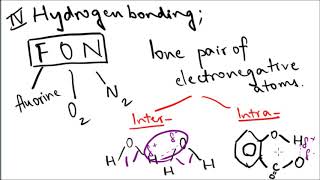 IV Hydrogen bonding;
F O N
lone pair of
electronegative
atoms.
fluorine
O2
N2
Inter-
Intra-
O
H δ+
O δ-
H
H
O
H
C
δ+